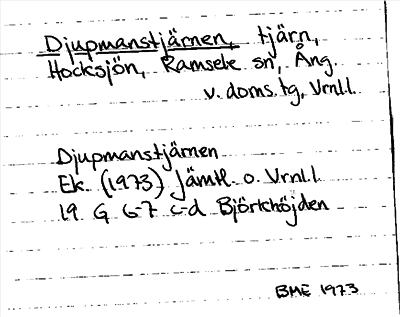 Djupmanstjärnen, tjärn,
Hocksjön, Ramsele sn, Ång.
v. doms. tg, Vrnl.l.
Djupmanstjärnen
Ek. (1973) Jämtl. o. Vrnl.l
19 G 6-7 c-d Björkhöjden
BME 1973